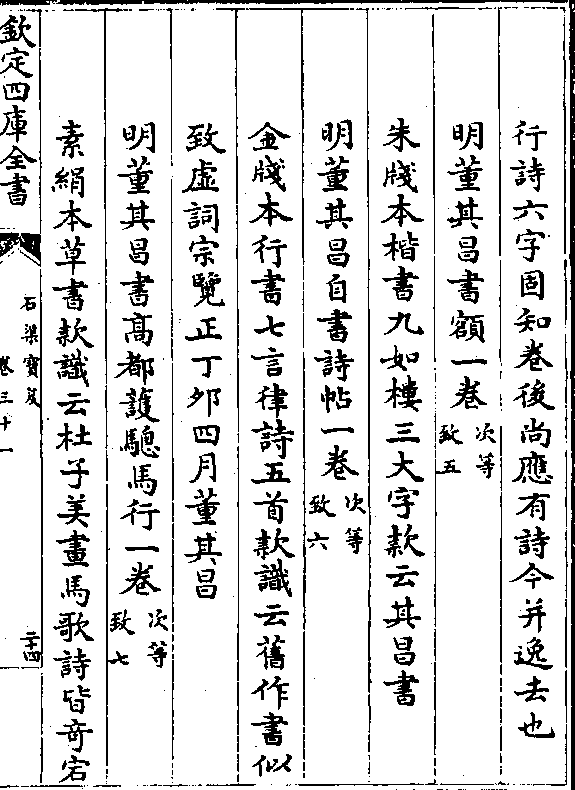 行詩六字固知卷後尚應有詩今并逸去也
明董其昌書額一卷次等致五
朱牋本楷書九如樓三大字款云其昌書
明董其昌自書詩帖一卷次等致六
金牋本行書七言律詩五首款識云舊作書似
致虛詞宗覽正丁夘四月董其昌
明董其昌書髙都護驄馬行一卷次等致七
素絹本草書款識云杜子美畫馬歌詩皆竒宕
欽定四庫全書
石渠寶笈
卷三十一
二十四